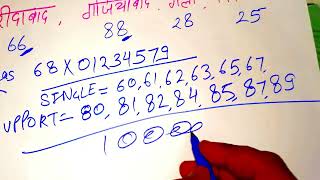 रीदाबाद, गाजियाबाद, गली,
66 88 28 25
68 X 01234579
SINGLE = 60, 61, 62, 63, 65, 67,
UPPORT = 80, 81, 82, 84, 85, 87, 89
10000